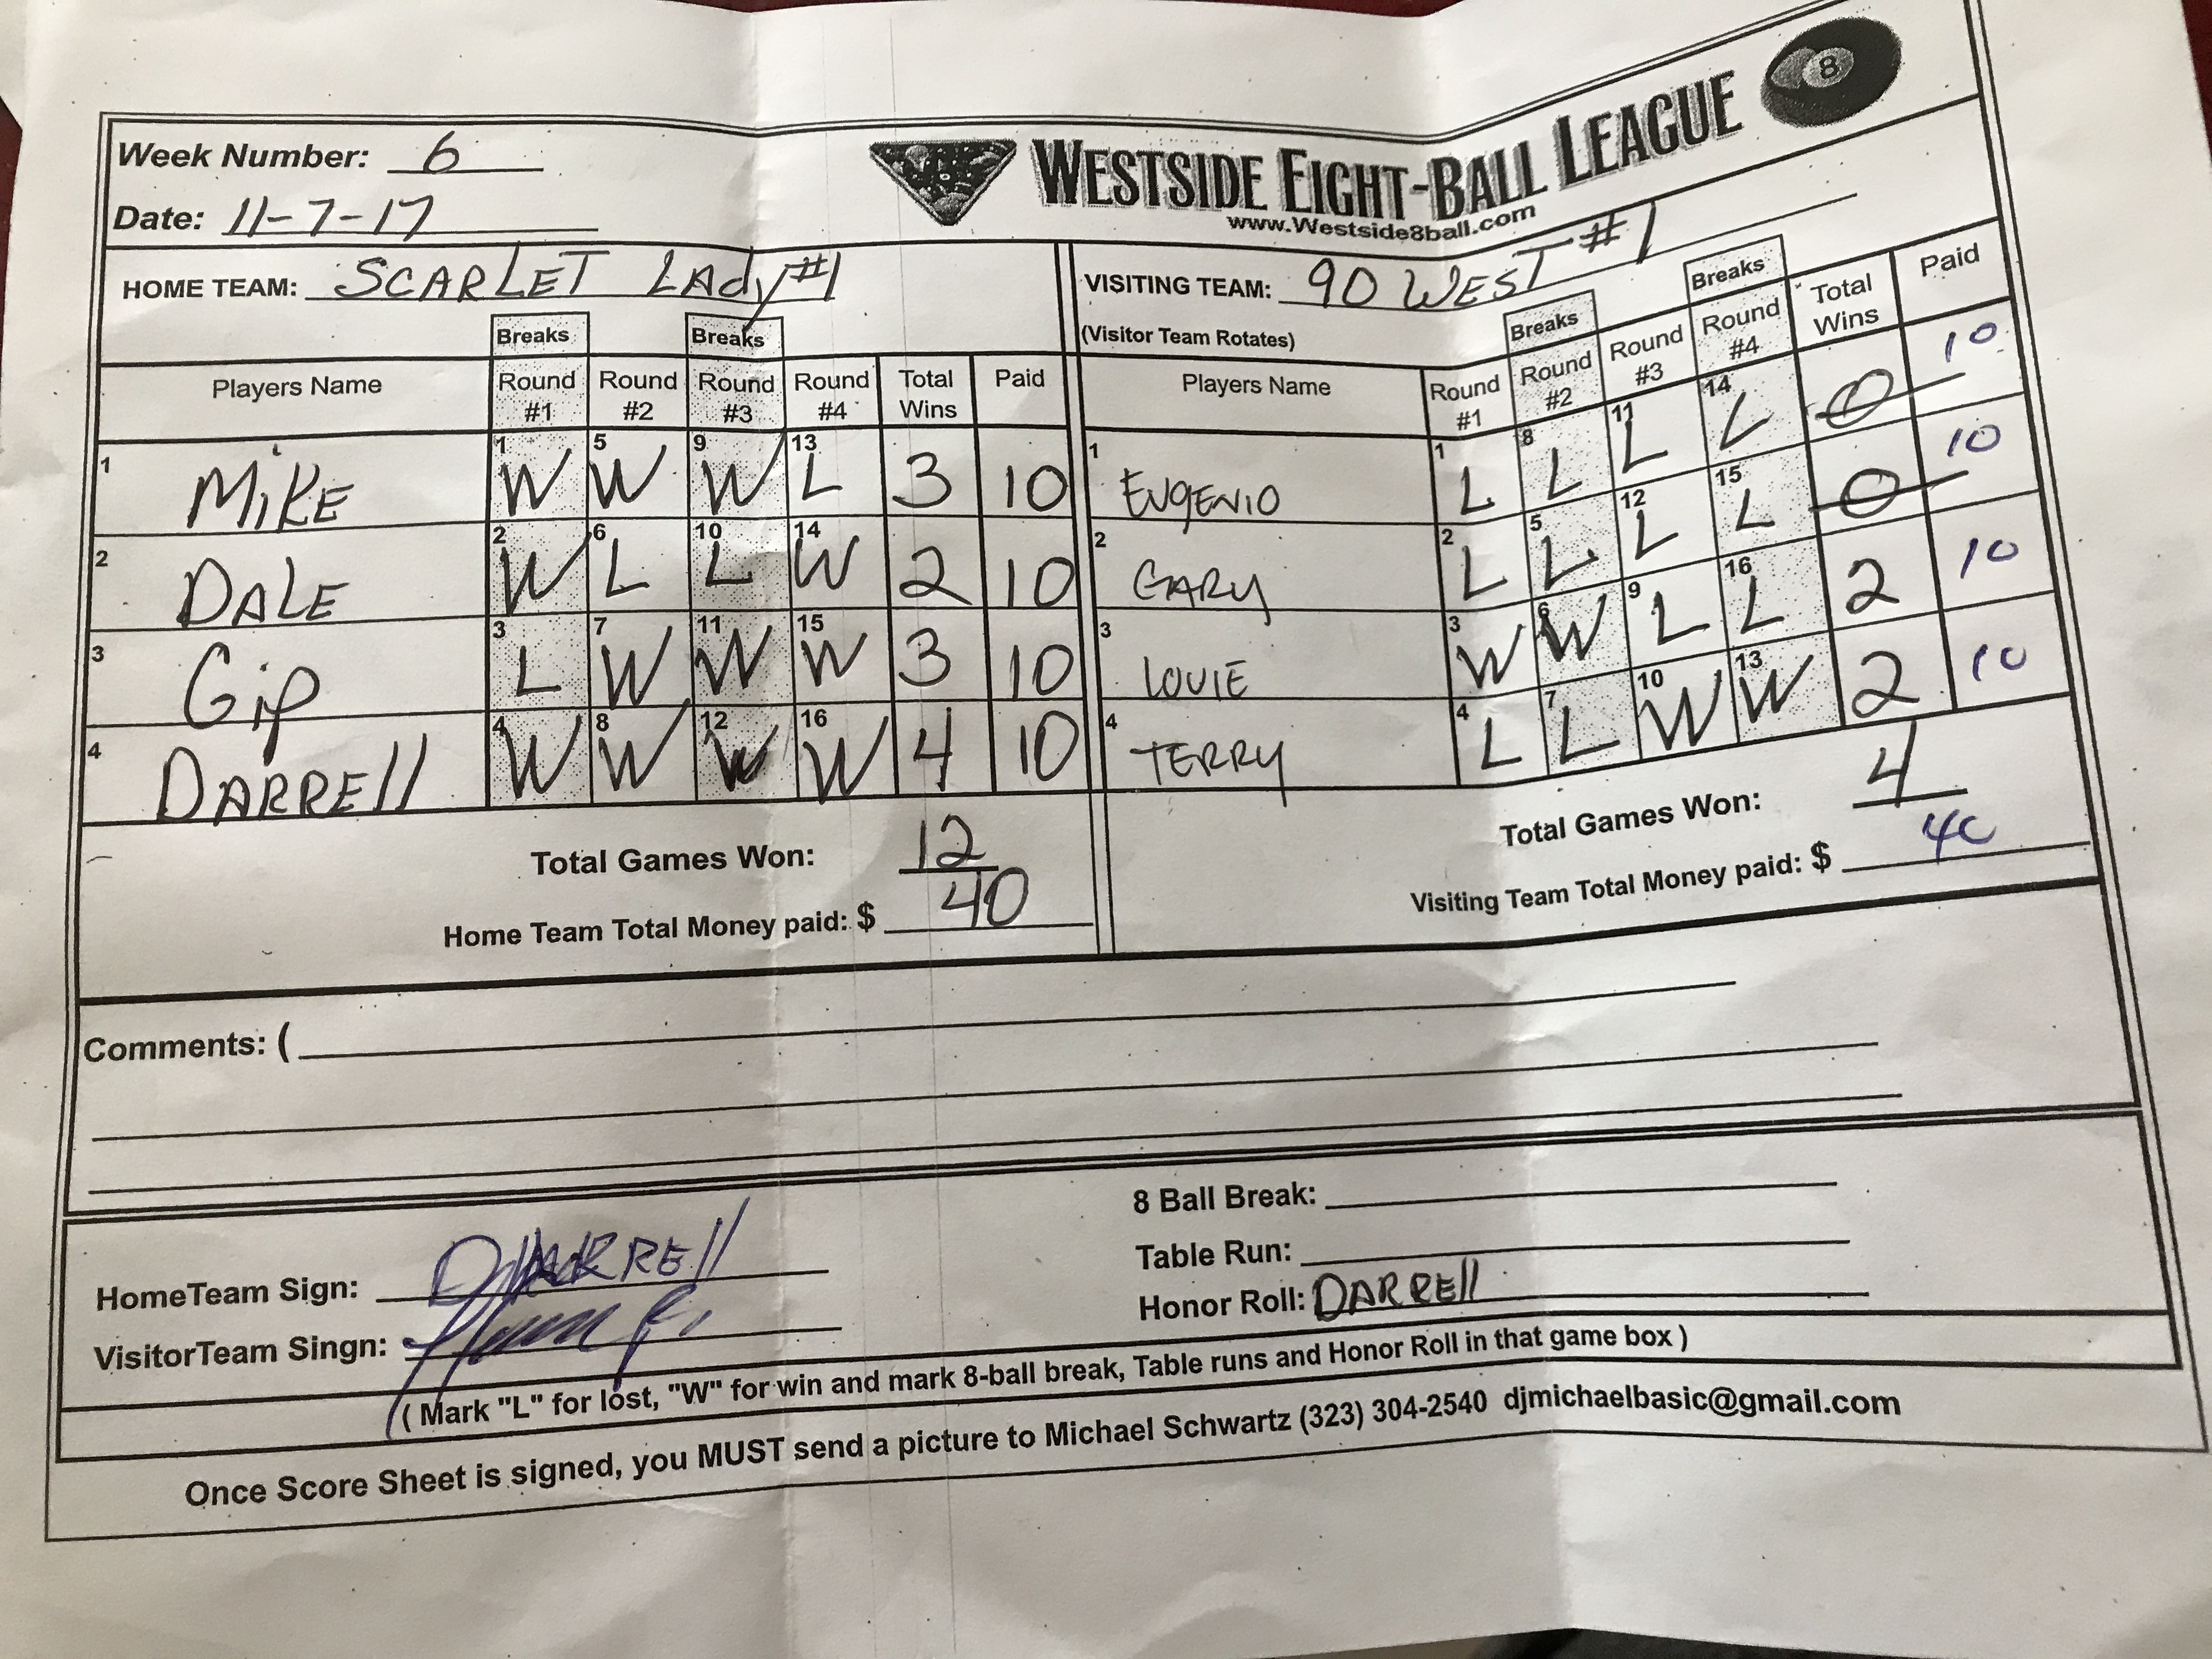 Week Number: 6
Date: 11-7-17
WESTSIDE EIGHT-BALL LEAGUE 8
www.Westside8ball.com
HOME TEAM: SCARLET LAdy #1
Breaks Breaks
Players Name Round #1 Round #2 Round #3 Round #4 Total Wins Paid
1 MiKE 1 W 5 W 9 W 13 L 3 10
2 DALE 2 W 6 L 10 L 14 W 2 10
3 Gip 3 L 7 W 11 W 15 W 3 10
4 DARREll 4 W 8 W 12 W 16 W 4 10
Total Games Won: 12
Home Team Total Money paid: $ 40
VISITING TEAM: 90 WEST #1
(Visitor Team Rotates) Breaks Breaks
Players Name Round #1 Round #2 Round #3 Round #4 Total Wins Paid
1 EUgENIO 1 L 8 L 11 L 14 L 0 10
2 GARy 2 L 5 L 12 L 15 L 0 10
3 LOUIE 3 W 6 W 9 L 16 L 2 10
4 TERRy 4 L 7 L 10 W 13 W 2 10
Total Games Won: 4
Visiting Team Total Money paid: $ 40
Comments: (
HomeTeam Sign: DARREll
VisitorTeam Singn:
8 Ball Break:
Table Run:
Honor Roll: DARREll
( Mark "L" for lost, "W" for win and mark 8-ball break, Table runs and Honor Roll in that game box )
Once Score Sheet is signed, you MUST send a picture to Michael Schwartz (323) 304-2540 djmichaelbasic@gmail.com